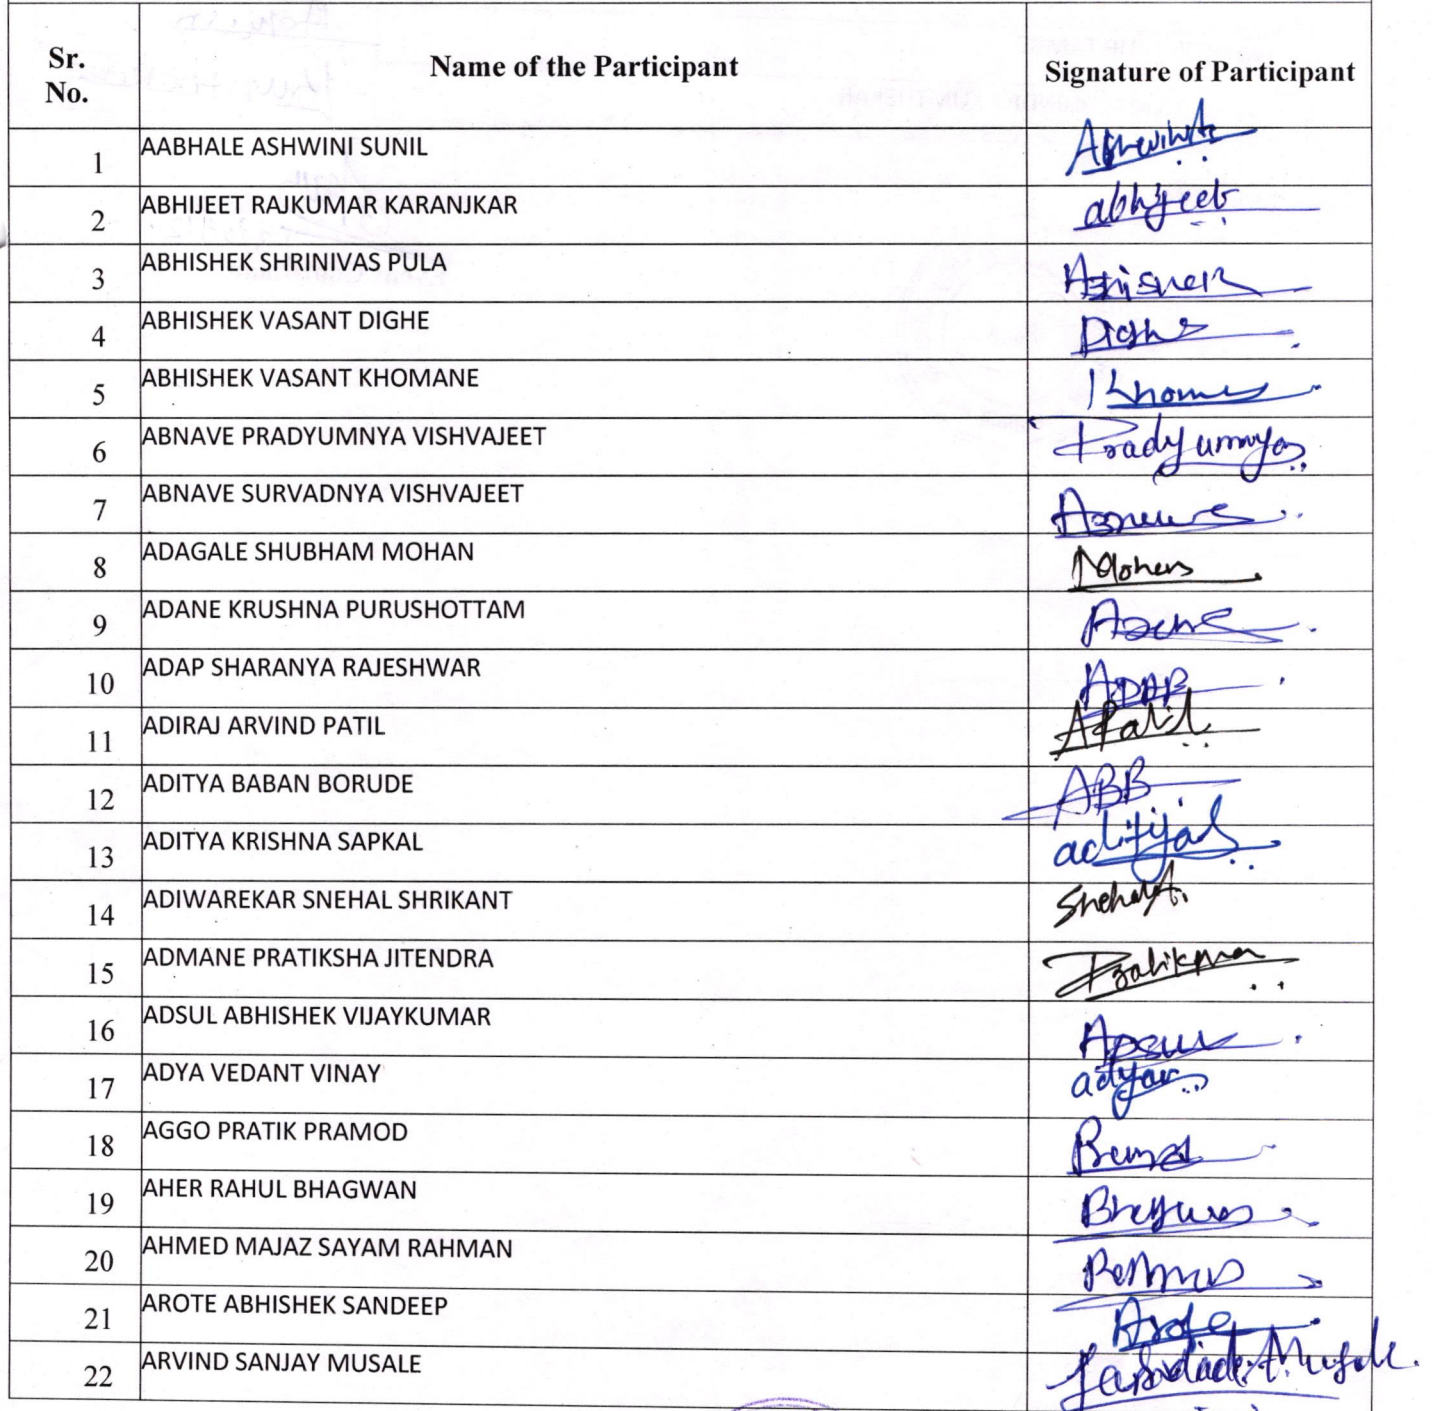 Sr. No. Name of the Participant Signature of Participant
1 AABHALE ASHWINI SUNIL
2 ABHIJEET RAJKUMAR KARANJKAR abhijeet
3 ABHISHEK SHRINIVAS PULA
4 ABHISHEK VASANT DIGHE
5 ABHISHEK VASANT KHOMANE
6 ABNAVE PRADYUMNYA VISHVAJEET Pradyumnya
7 ABNAVE SURVADNYA VISHVAJEET
8 ADAGALE SHUBHAM MOHAN
9 ADANE KRUSHNA PURUSHOTTAM
10 ADAP SHARANYA RAJESHWAR ADAP
11 ADIRAJ ARVIND PATIL APatil
12 ADITYA BABAN BORUDE ABB
13 ADITYA KRISHNA SAPKAL
14 ADIWAREKAR SNEHAL SHRIKANT
15 ADMANE PRATIKSHA JITENDRA
16 ADSUL ABHISHEK VIJAYKUMAR
17 ADYA VEDANT VINAY
18 AGGO PRATIK PRAMOD
19 AHER RAHUL BHAGWAN
20 AHMED MAJAZ SAYAM RAHMAN
21 AROTE ABHISHEK SANDEEP Arote
22 ARVIND SANJAY MUSALE